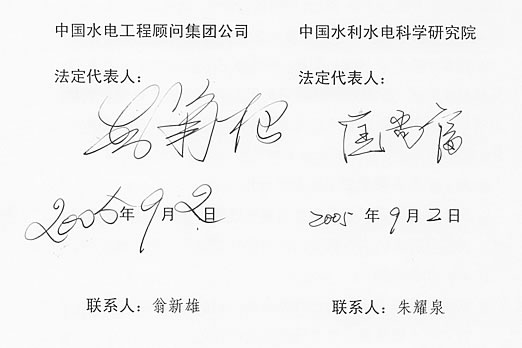 中国水电工程顾问集团公司
法定代表人：
2005年9月2日
联系人：翁新雄
中国水利水电科学研究院
法定代表人：
匡尚富
2005年9月2日
联系人：朱耀泉